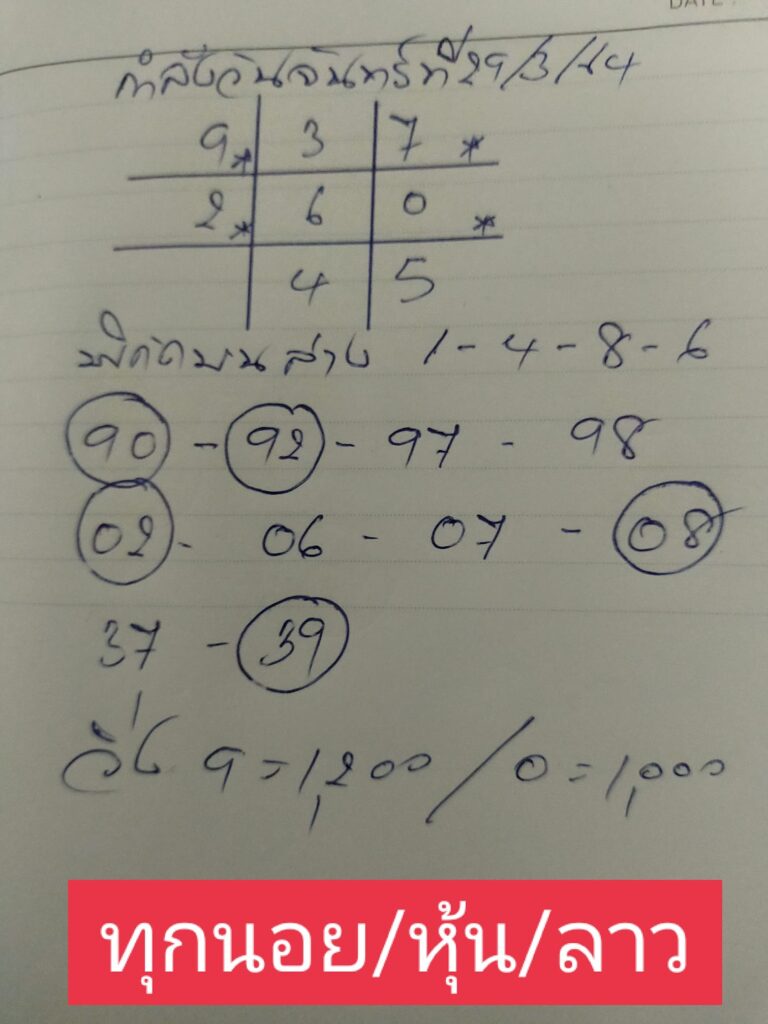 DATE
กำลังวันจันทร์ที่ 29/3/64
9* 3 7 *
2* 6 0 *
4 5
พิกัดบน ล่าง 1-4-8-6
90 - 92 - 97 - 98
02 - 06 - 07 - 08
37 - 39
วิ่ง 9 = 1,200 / 0 = 1,000
ทุกนอย/หุ้น/ลาว